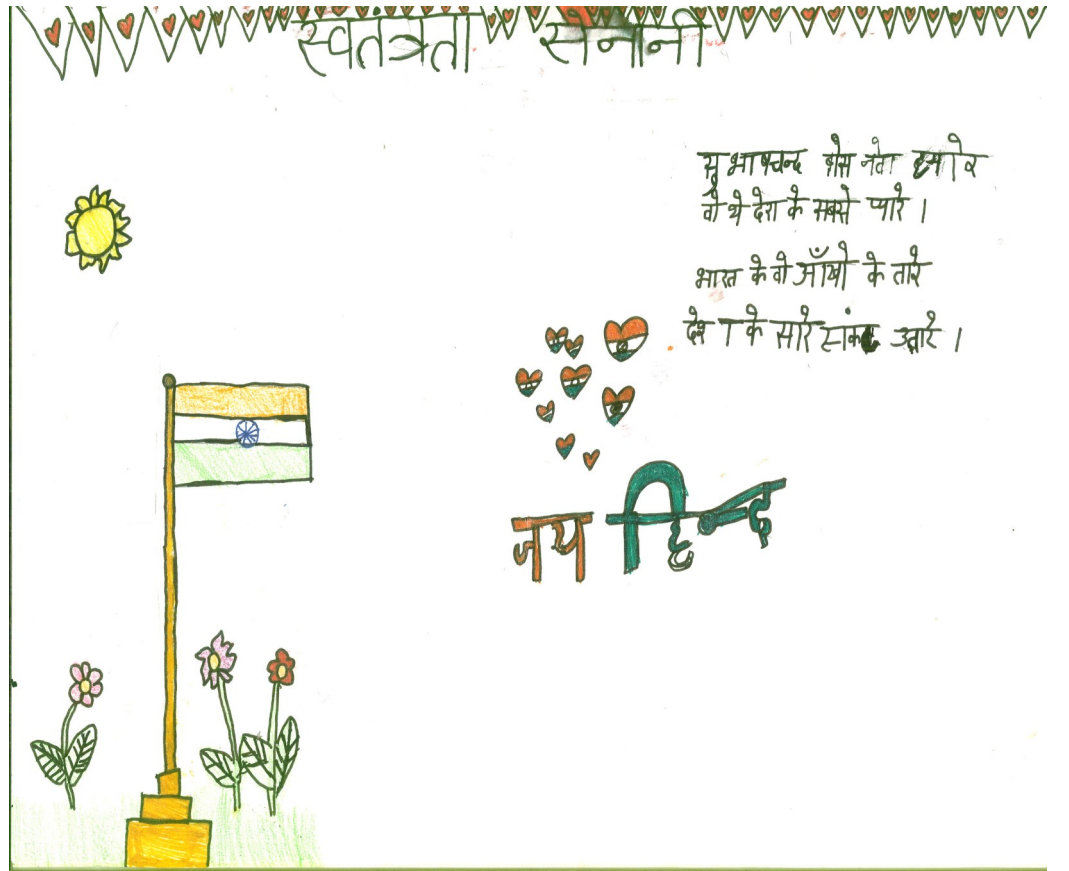 स्वतंत्रता सेनानी
सुभाषचन्द बोस नेता हमारे
वो थे देश के सबसे प्यारे ।
भारत के वो आँखो के तारे
देश के सारे संकट उबारे ।
जय हिन्द